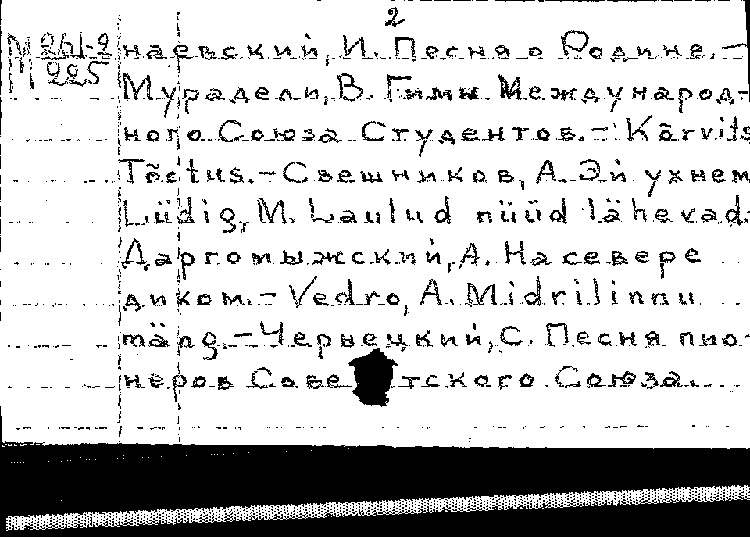 2
M 261-2
M 225
наевский, И. Песня о Родине.–
Мурадели, В. Гимн Международ-
ного Союза Студентов.– Kärvits
Tõotus.– Свешников, А. Эй ухнем
Lüdig, M. Laulud nüüd lähevad.
Даргомыжский, А. На севере
диком.– Vedro, A. Midrilinnu
mäng.– Чернецкий, С. Песня пио-
неров Советского Союза.